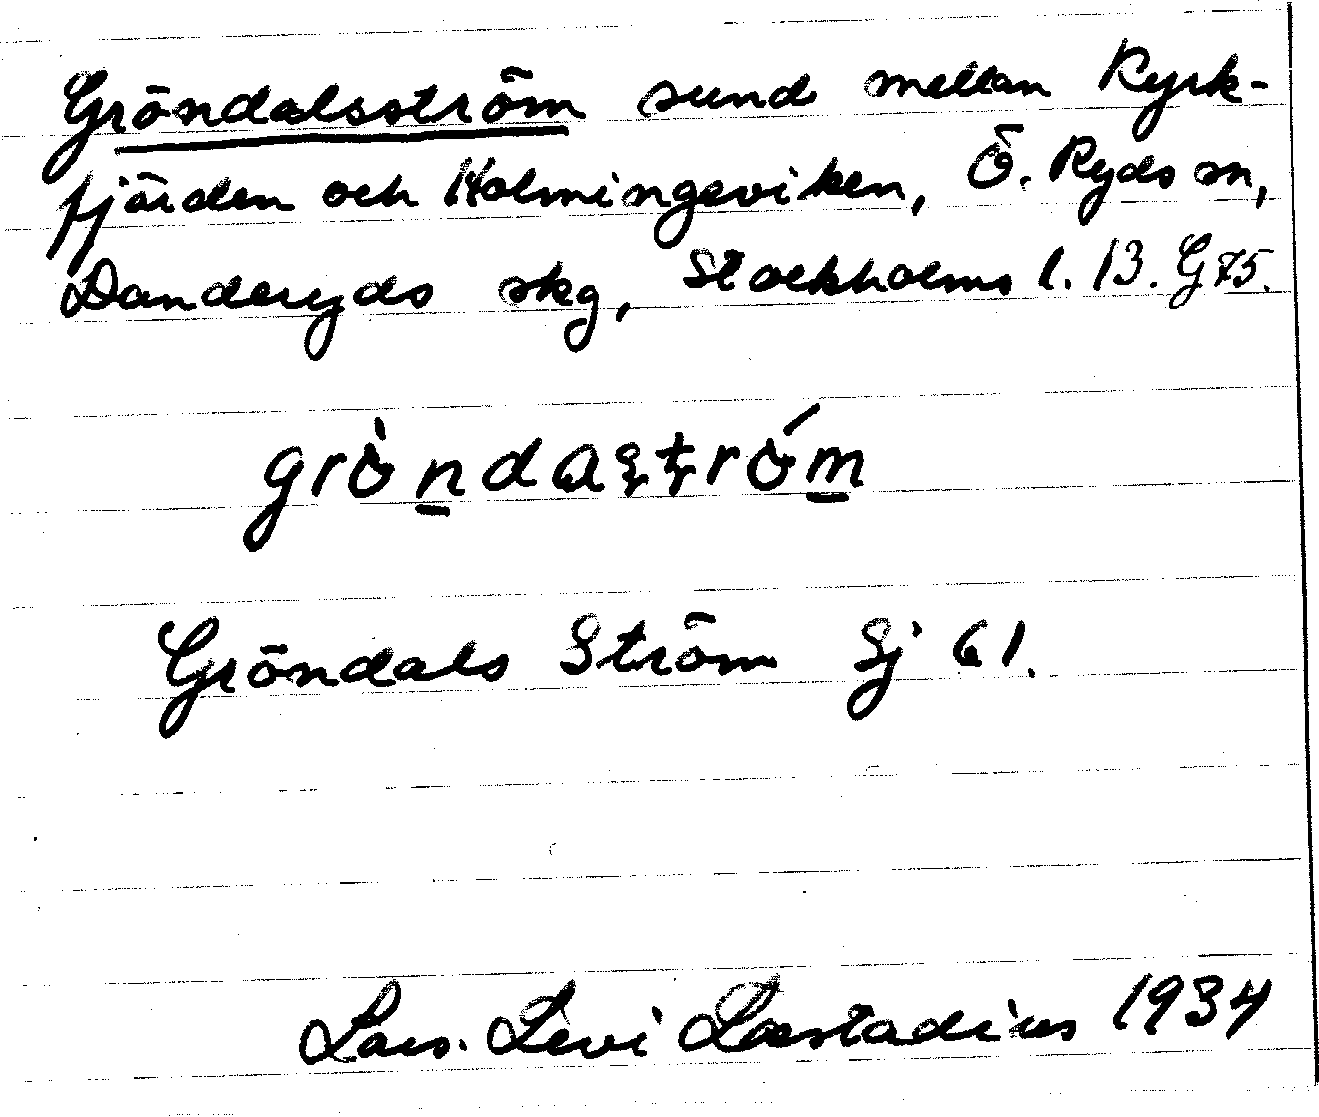 Gröndalsström sund mellan Kyrk-
fjärden och Holmingeviken, Ö. Ryds sn,
Danderyds skg, Stockholms l. B. G 75.
gròndaʂʈróm
Gröndals Ström Sj 61.
Lars. Levi Læstadius 1934